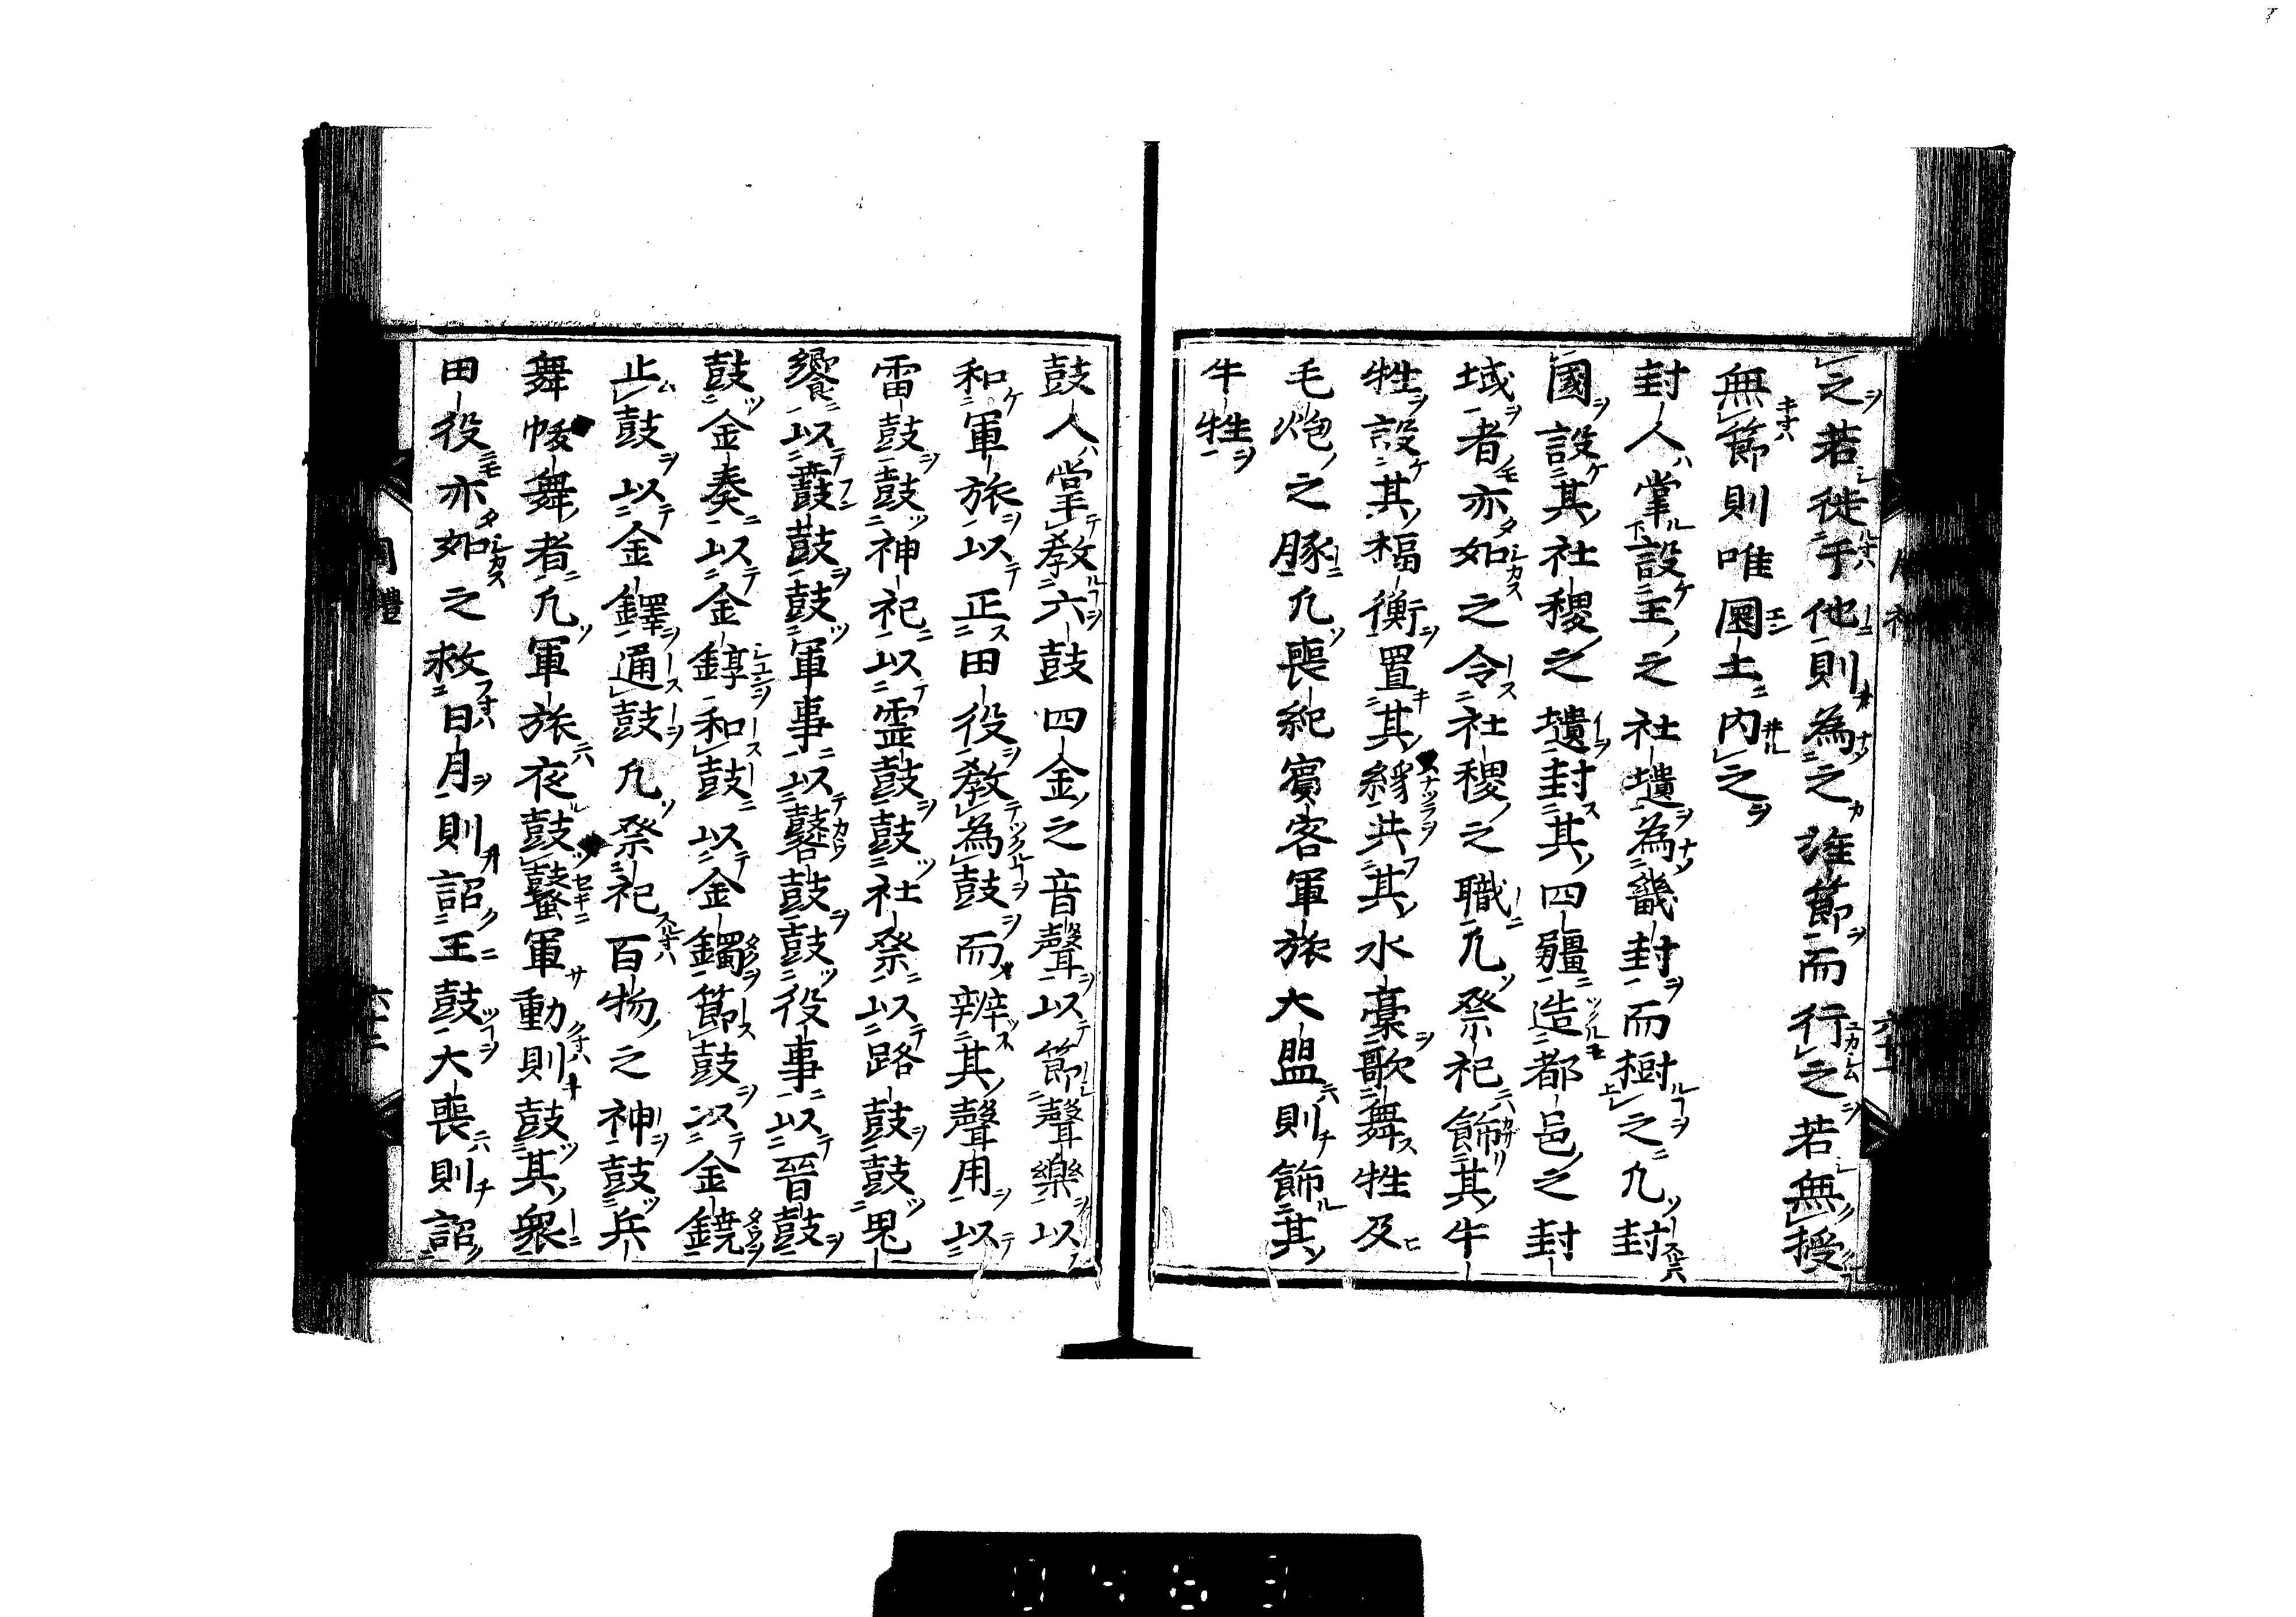 之若徙于他則為之旌節而行之若無授
無節則唯圜土內之
封人掌設王之社壝為畿封而樹之凡封
國設其社稷之壝封其四疆造都邑之封
域者亦如之令社稷之職凡祭祀飾其牛
牲設其楅衡置其絼共其水藁歌舞牲及
毛炮之豚凡喪紀賓客軍旅大盟則飾其
牛牲
鼓人掌教六鼓四金之音聲以節聲樂以
和軍旅以正田役教為鼓而辨其聲用以
雷鼓鼓神祀以霊鼓鼓社祭以路鼓鼓鬼
饗以鼖鼓鼓軍事以鼛鼓鼓役事以晉鼓
鼓金奏以金錞和鼓以金鐲節鼓以金鐃
止鼓以金鐸通鼓凡祭祀百物之神鼓兵
舞帗舞者凡軍旅夜鼓鼜軍動則鼓其衆
田役亦如之救日月則詔王鼓大喪則詔